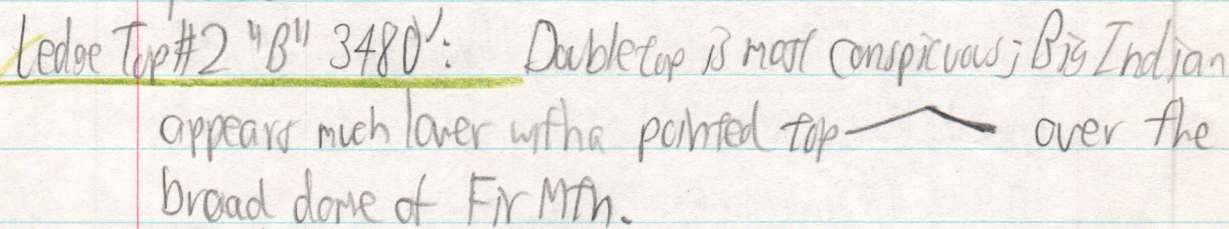 Ledge Top #2 "B" 3480': Doubletop is most conspicuous; Big Indian
appears much lower with a pointed top over the
broad dome of Fir Mtn.